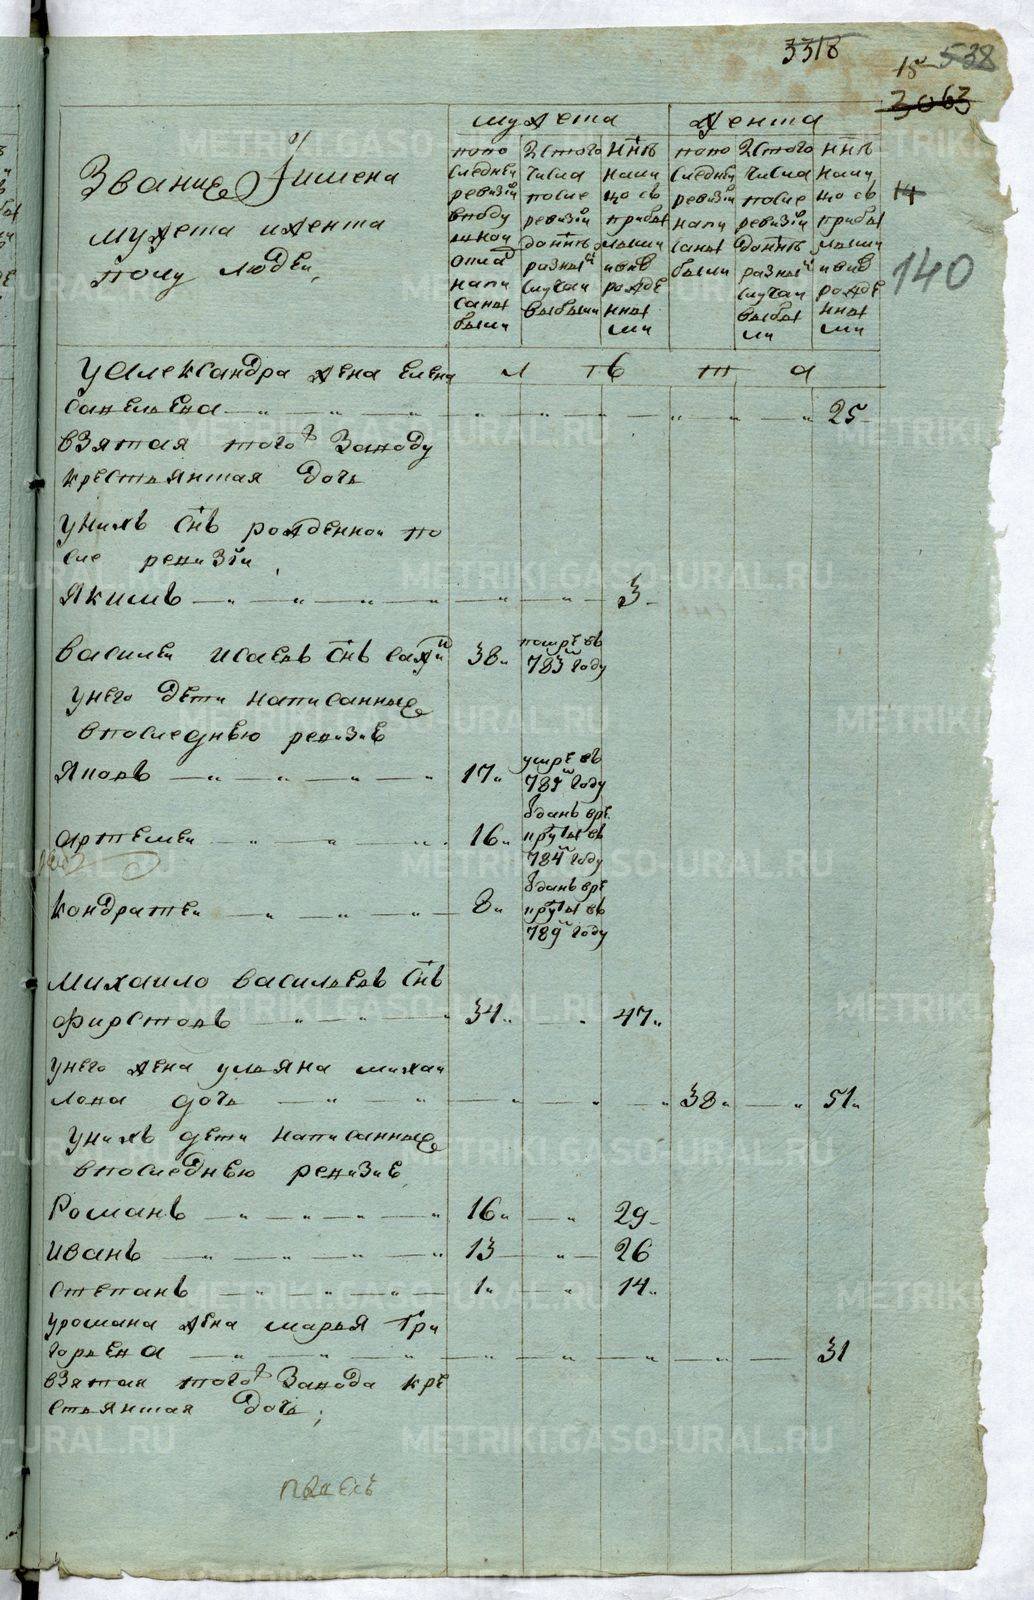 3318
15 538
3063
14
140
Звание Ѵ имена
мужеска и женска
полу людеи
мужеска
попо
следнеи
ревизіи
вподу
шнои
оклад
напи
саны
были
Изтого
числа
после
ревизіи
до ннѣ
разныи
случаи
выбыли
ннѣ
нали
цо съ
прибы
лыми
ивнв
рожде
нны
ми
женска
попо
следнеи
ревизіи
напи
саны
были
Изтого
числа
после
ревизіи
до ннѣ
разныи
случаи
выбы
ли
ннѣ
нали
цо съ
прибы
лыми
ивнв
рожде
нны
ми
л тъ т а
уАлександра жена Елена
савельева 25
взятая того Заводу
крестьянская дочь
унихъ снъ рожденнои по
сле ревизіи
Якимъ 3
василеи исаевъ снъ 38 помре въ 783м году
унего дети написанные
впоследнюю ревизию
Яковъ 17 умре въ 789м году
артемеи 16 оданъ вре круты въ 784м году
кондратеи 8 оданъ вре круты въ 789м году
михаило васильевъ снъ
фирстовъ 34 47
унего жена ульяна михаи
лова дочь 38 51
унихъ дети написанные
впоследнюю ревизие
Романъ 16 29
иванъ 13 26
степанъ 1 14
уромана жена марья Гри
горьева 31
взятая того Завода кре
стьянская дочь
METRIKI.GASO-URAL.RU